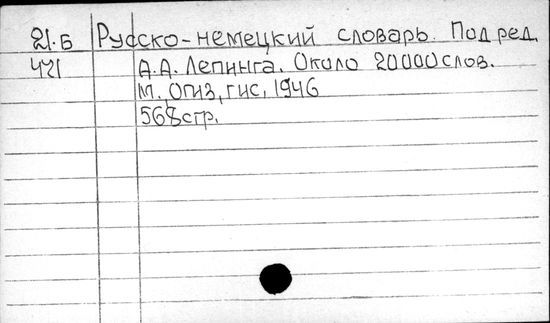 21.Б Русско-немецкий словарь. Под ред.
421 А.А. Лепинга. Около 20000 слов.
М., ОГИЗ, ГИС, 1946
568 стр.